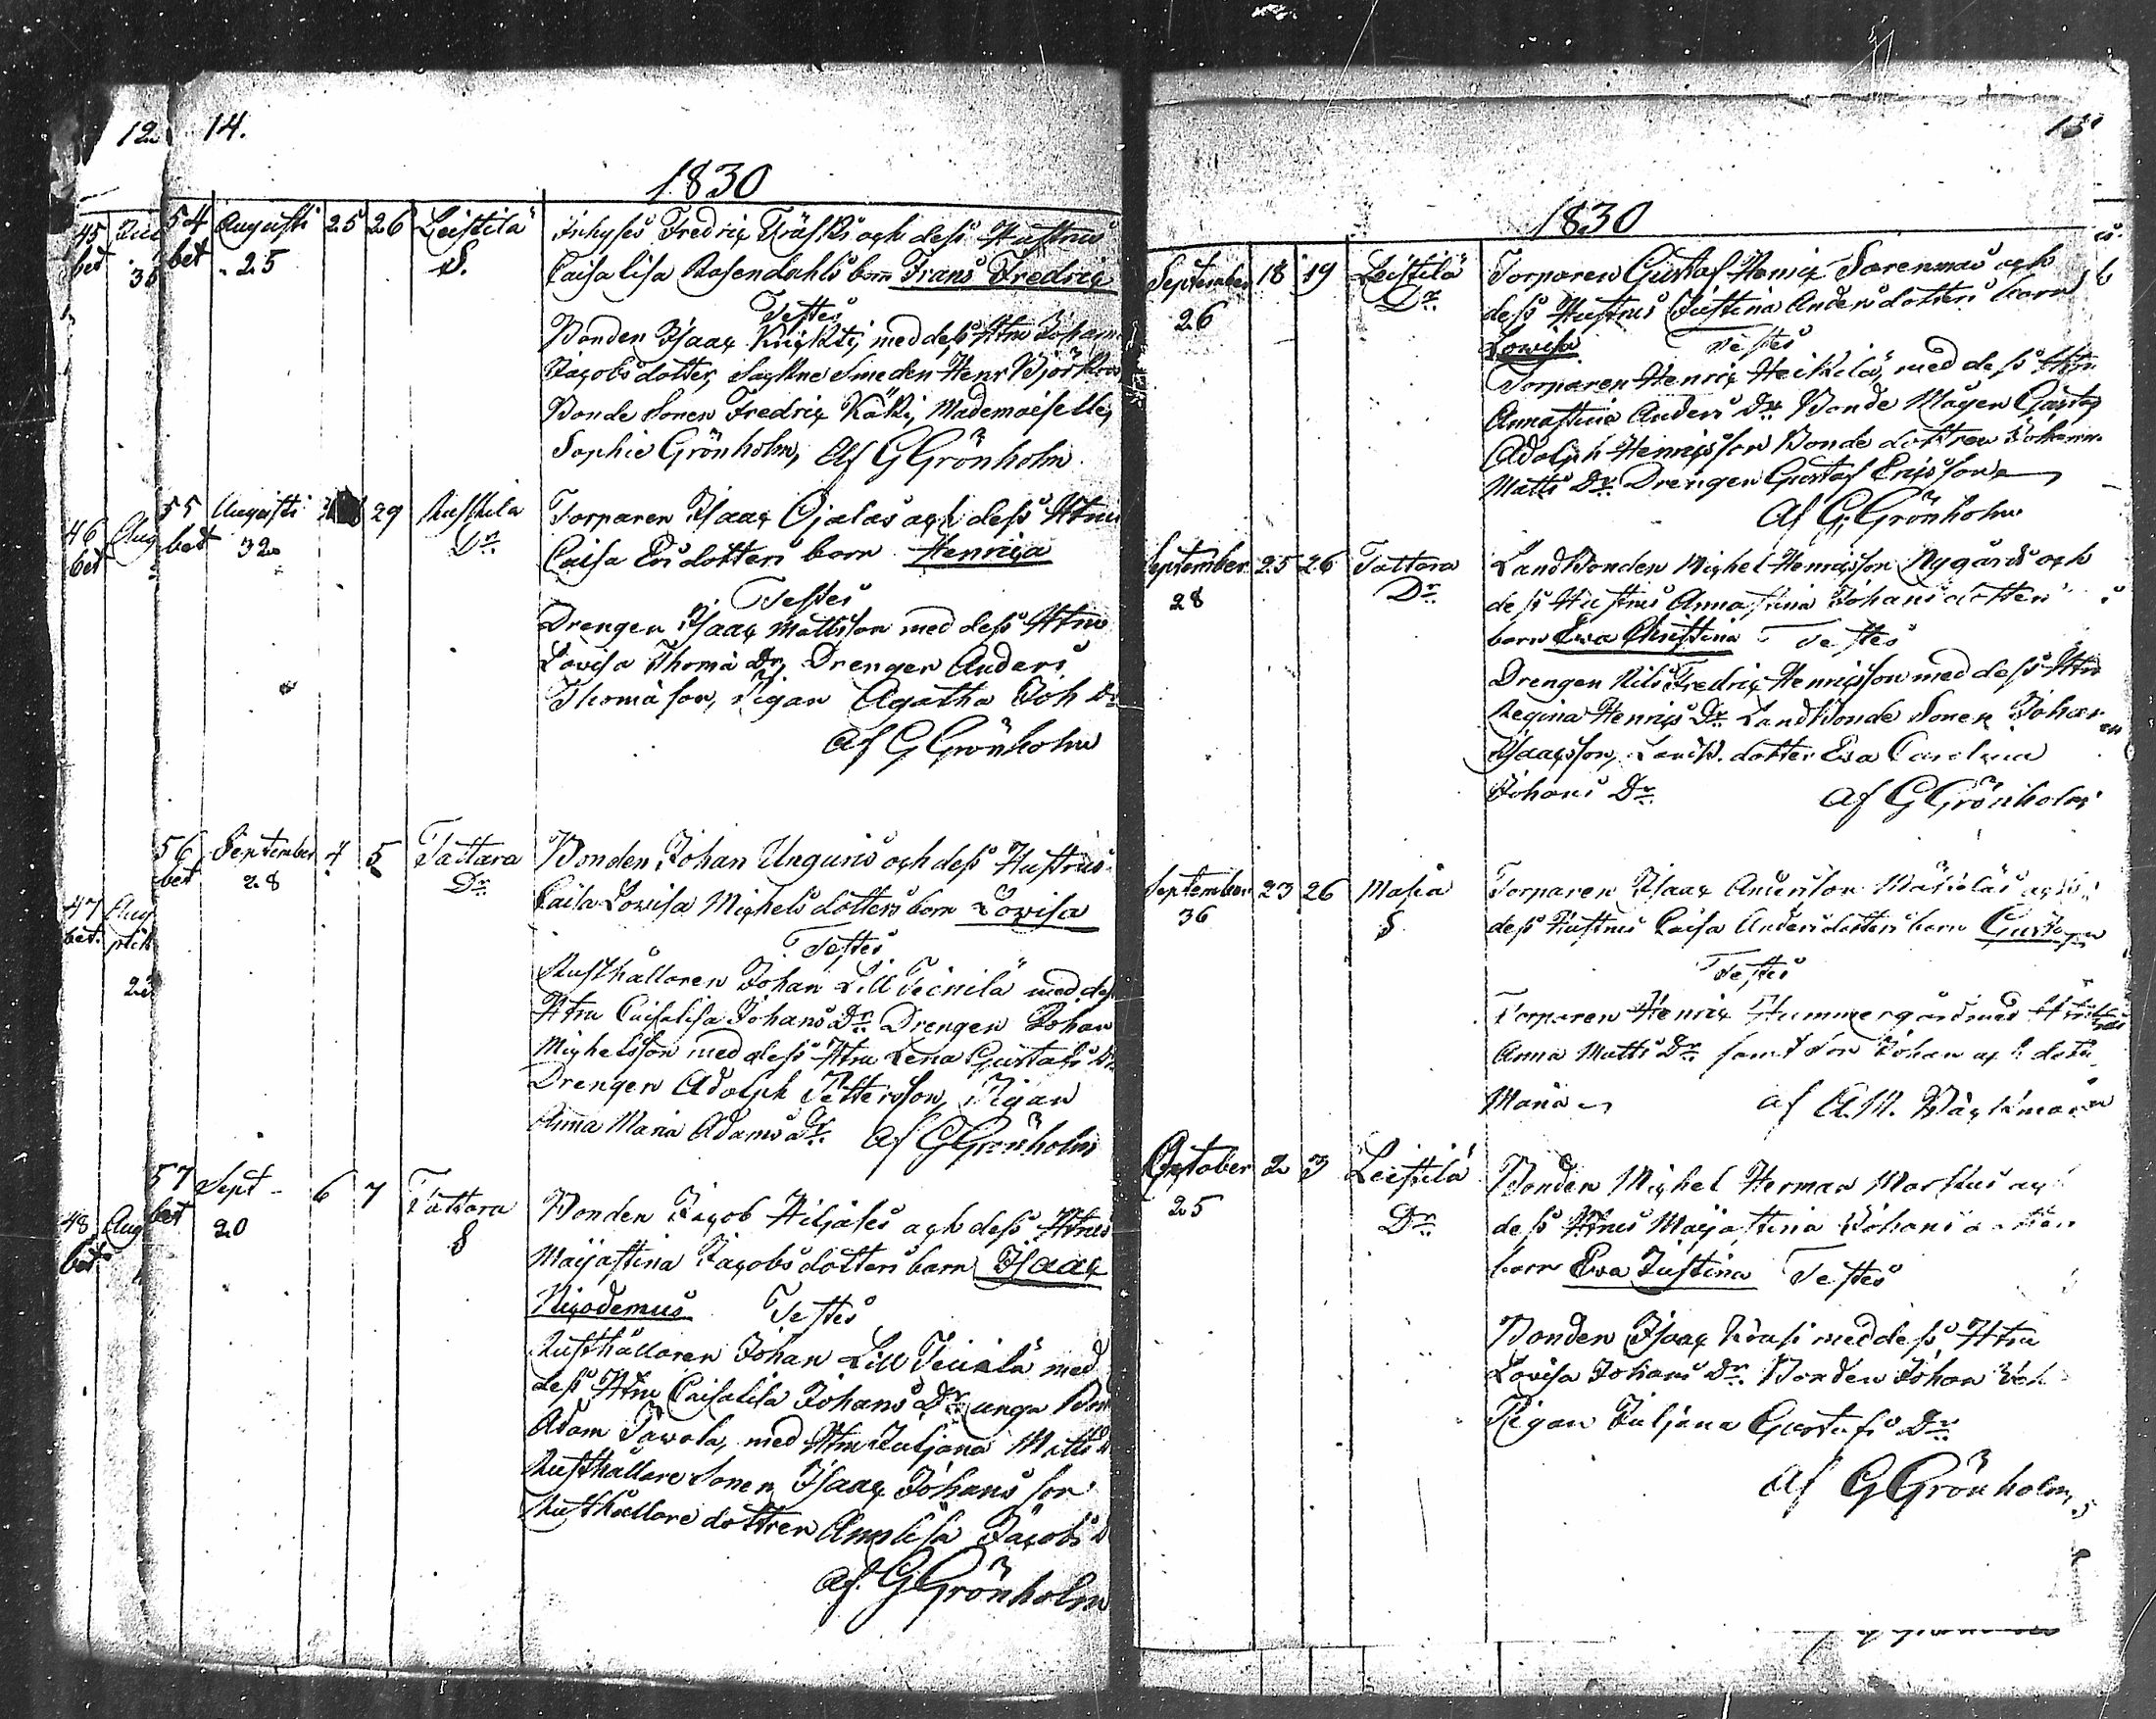 12
14.
1830
54 Augusti 25 26 Leistilä Fredric Träsks och dess Hustrus
bet 25 S. Caisa Lisa Rosendahls barn Frans Fredric
Testes
Bonden Isaac med dess Htru Johan
Jacobs dotter, Smeden Henr Björkroos
Bonde Sonen Fredric Käki, Mademoiselle
Sophie Grönholm, Af G Grönholm
55 Augusti 29 Ruskila Torparen Isaac Ojalas och dess Htrus
bet 32 Dr Caisa Ersdotters barn Henrica
Testes
Drengen Isaac Mattsson med dess Htru
Lovisa Thoma Dr, Drengen Anders
Thomason, Pigan Agatha Joh Dr
Af G Grönholm
56 September 4 5 Tattara Bonden Johan Unguris och dess Hustrus
bet 28 Dr Caisa Lovisa Michelsdotters barn Lovisa
Testes
Rusthållaren Johan Lill med dess
Htru Caisalisa Johans Dr Drengen Johan
Michelsson med dess Htru Lena Gustafs Dr
Drengen Adolph Pettersson, Pigan
Anna Maria Adams Dr Af G Grönholm
57 Sept 6 7 Tattara Bonden Jacob Hiljales och dess Htrus
bet 20 S Majastina Jacobsdotters barn Isaac
Nicodemus Testes
Rusthållaren Johan Lill med
dess Htru Caisalisa Johans Dr unga
Adam Tawola, med Htru Juljana Matts Dr
Rusthållare Sonen Isaac Johansson
Rusthållare dottren Annalisa Jacobs D
af G Grönholm
45
bet
46 Aug
bet
47 Aug
bet
48 Aug
bet
15
1830
September 18 19 Leistilä Torparen Gustaf Henric Sorenmas och
26 Dr dess Hustrus Justina Andersdotters barn
Lowisa Testes
Torparen Henric Heikilä, med dess Htru
Annastina Anders Dr Bonde Mågen Gustaf
Adolph Henricsson Bonde dottren Johanna
Matts Dr Drengen Gustaf Ericsson
Af G Grönholm
September 25 26 Tattara Landbonden Michel Henricsson Nygårds och
28 Dr dess Hustrus Annastina Johansdotters
barn Ewa Christina Testes
Drengen Nils Fredric Henricsson med dess Htru
Regina Henrics Dr Landbonde Sonen Johan
Isaacsson, Landb. dotter Eva Carolina
Johans Dr Af G Grönholm
September 23 26 Masia Torparen Isaac Andersson och
36 S dess Hustrus Caisa Andersdotters barn Gustaf
Testes
Torparen Henric Hummergård med Hustrus
Anna Matts Dr samt Son Johan och dotter
Maria af A.M.
October 2 3 Leistilä Bonden Michel Herman Markus och
25 Dr dess Htrus Majastina Johansdotters
barn Eva Justina Testes
Bonden Isaac med dess Htru
Lovisa Johans Dr Bonden Johan
Pigan Juljana Gustafs Dr
Af G Grönholm